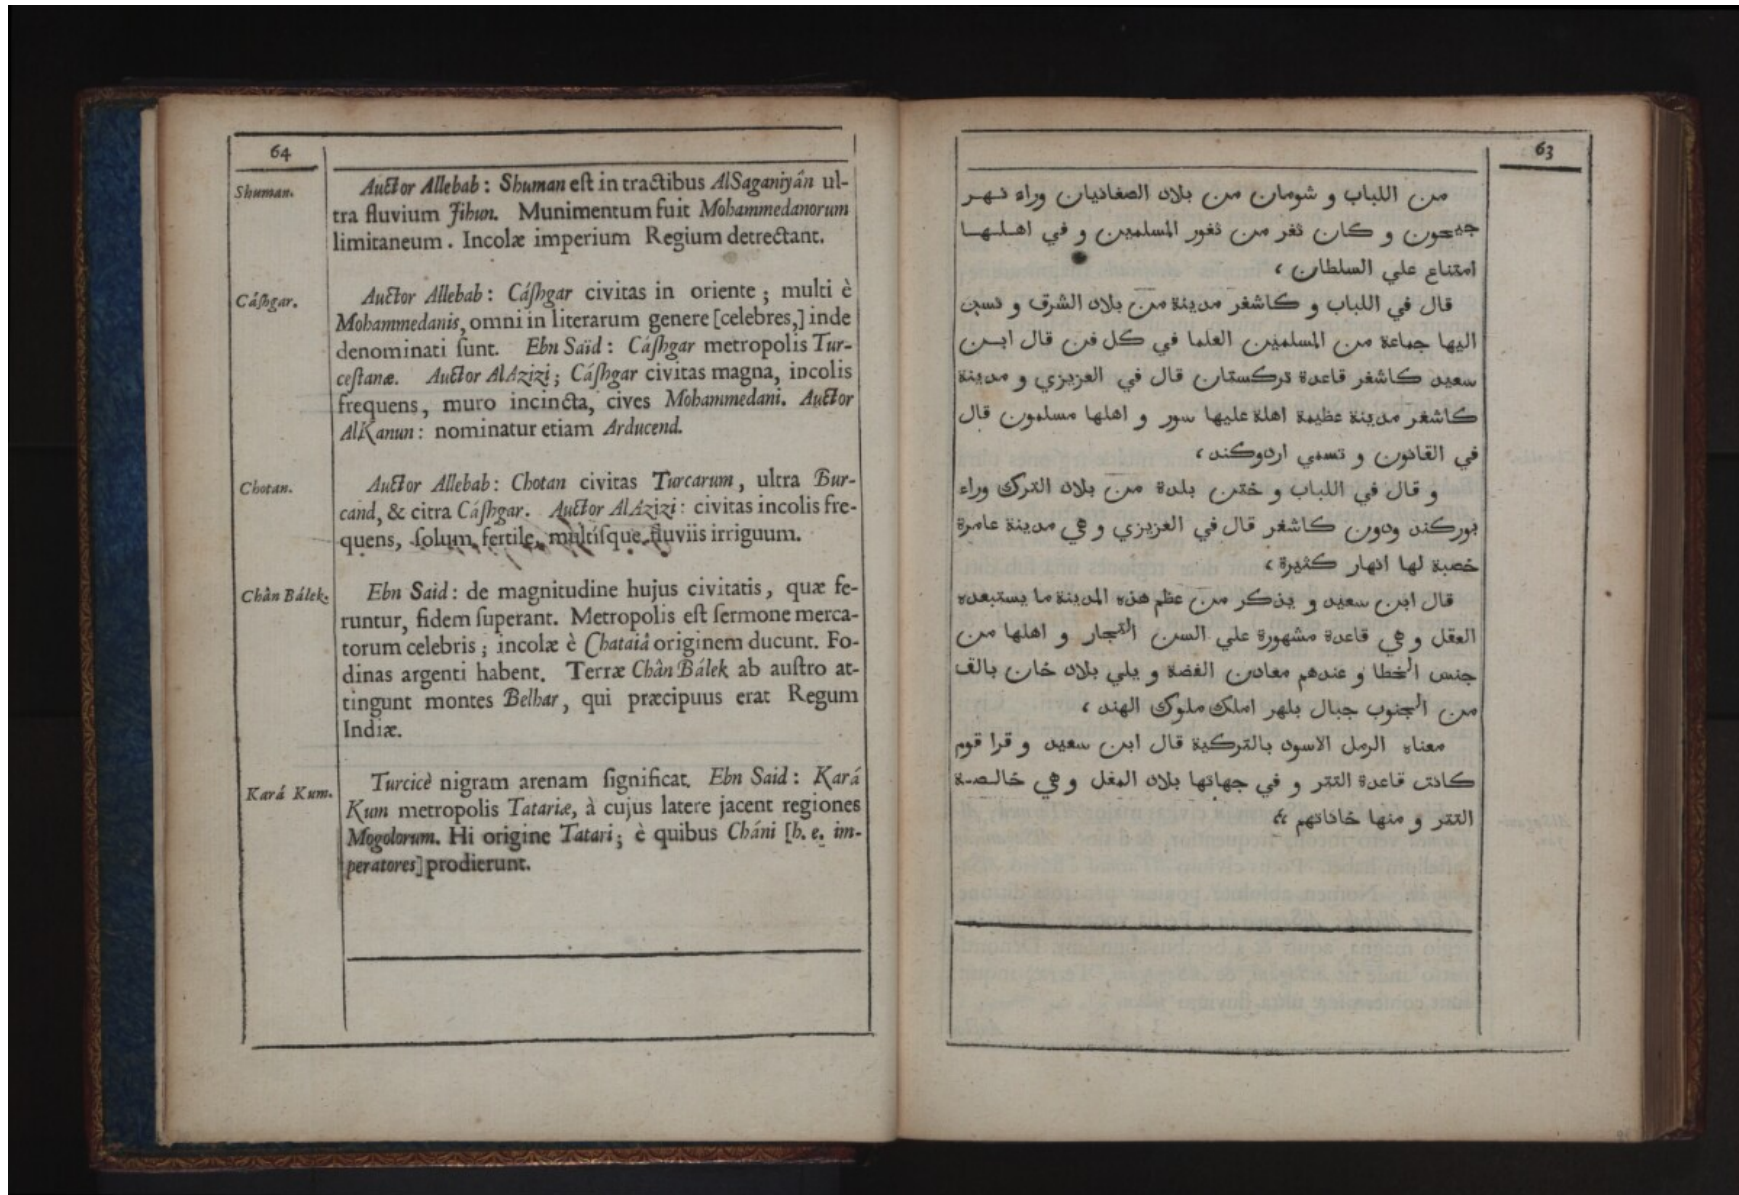 64
Shuman.
Auctor Allebab: Shuman est in tractibus AlSaganiyân ul-
tra fluvium Jihun. Munimentum fuit Mohammedanorum
limitaneum. Incolæ imperium Regium detrectant.
Cáshgar.
Auctor Allebab: Cáshgar civitas in oriente; multi è
Mohammedanis, omni in literarum genere [celebres,] inde
denominati sunt. Ebn Saïd: Cáshgar metropolis Tur-
cestanæ. Auctor AlAzizi; Cáshgar civitas magna, incolis
frequens, muro incincta, cives Mohammedani. Auctor
AlKanun: nominatur etiam Arducend.
Chotan.
Auctor Allebab: Chotan civitas Turcarum, ultra Bur-
cand, & citra Cáshgar. Auctor AlAzizi: civitas incolis fre-
quens, solum fertile, multisque fluviis irriguum.
Chân Bálek.
Ebn Said: de magnitudine hujus civitatis, quæ fe-
runtur, fidem superant. Metropolis est sermone merca-
torum celebris; incolæ è Chataiâ originem ducunt. Fo-
dinas argenti habent. Terræ Chân Bálek ab austro at-
tingunt montes Belhar, qui præcipuus erat Regum
Indiæ.
Kará Kum.
Turcicè nigram arenam significat. Ebn Said: Kará
Kum metropolis Tatariæ, à cujus latere jacent regiones
Mogolorum. Hi origine Tatari; è quibus Cháni [h. e. im-
peratores] prodierunt.
63
من اللباب و شومان من بلاد الصغانيان وراء نهر
جيحون و كان ثغر من ثغور المسلمين و في اهلها
امتناع علي السلطان ،
قال في اللباب و كاشغر مدينة من بلاد الشرق و نسب
اليها جماعة من المسلمين العلما في كل فن قال ابن
سعيد كاشغر قاعدة تركستان قال في العزيزي و مدينة
كاشغر مدينة عظيمة اهلة عليها سور و اهلها مسلمون قال
في القانون و تسمي اردوكند ،
و قال في اللباب و ختن بلدة من بلاد الترك وراء
بوركند ودون كاشغر قال في العزيزي و هي مدينة عامرة
خصبة لها انهار كثيرة ،
قال ابن سعيد و يذكر من عظم هذه المدينة ما يستبعده
العقل و هي قاعدة مشهورة علي السن التجار و اهلها من
جنس الخطا و عندهم معادن الفضة و يلي بلاد خان بالق
من الجنوب جبال بلهر املك ملوك الهند ،
معناه الرمل الاسود بالتركية قال ابن سعيد و قرا قوم
كانت قاعدة التتر و في جهاتها بلاد المغل و هي خالصة
التتر و منها خاناتهم ،،